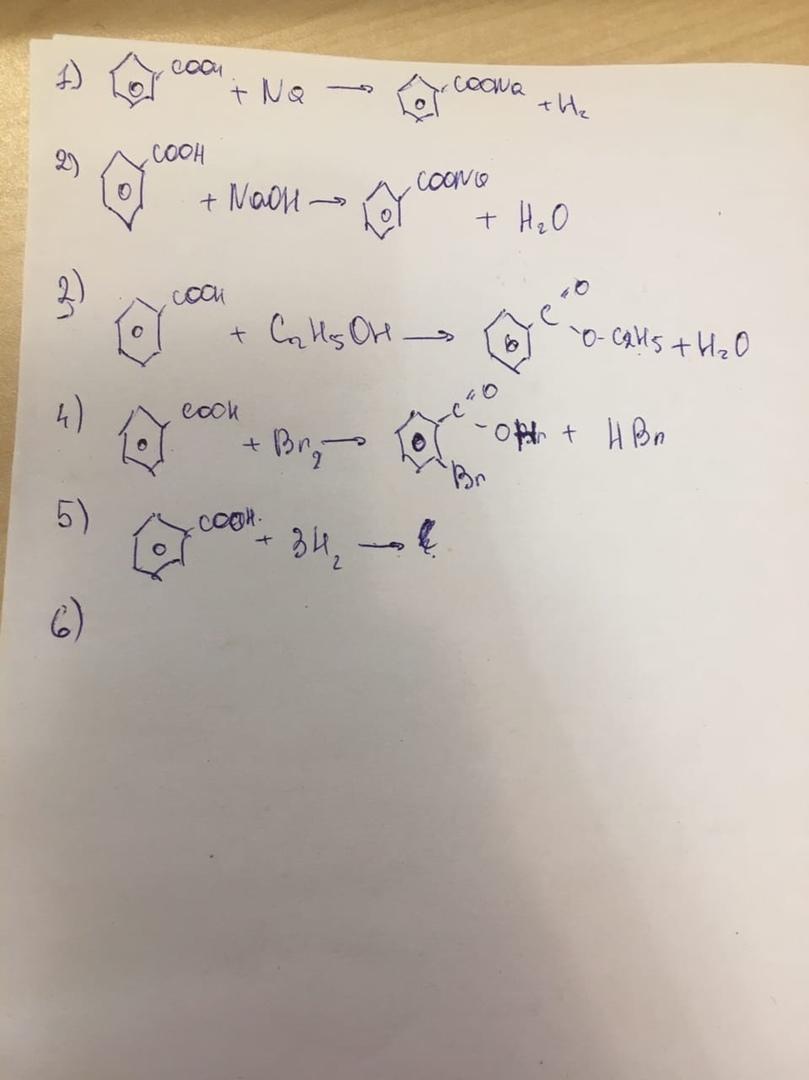 1) COOH + Na → COONa + H₂
2) COOH + NaOH → COONa + H₂O
3) COOH + C₂H₅OH → C=O O-C₂H₅ + H₂O
4) COOH + Br₂ → C=O -OH Br + HBr
5) COOH + 3H₂ →
6)